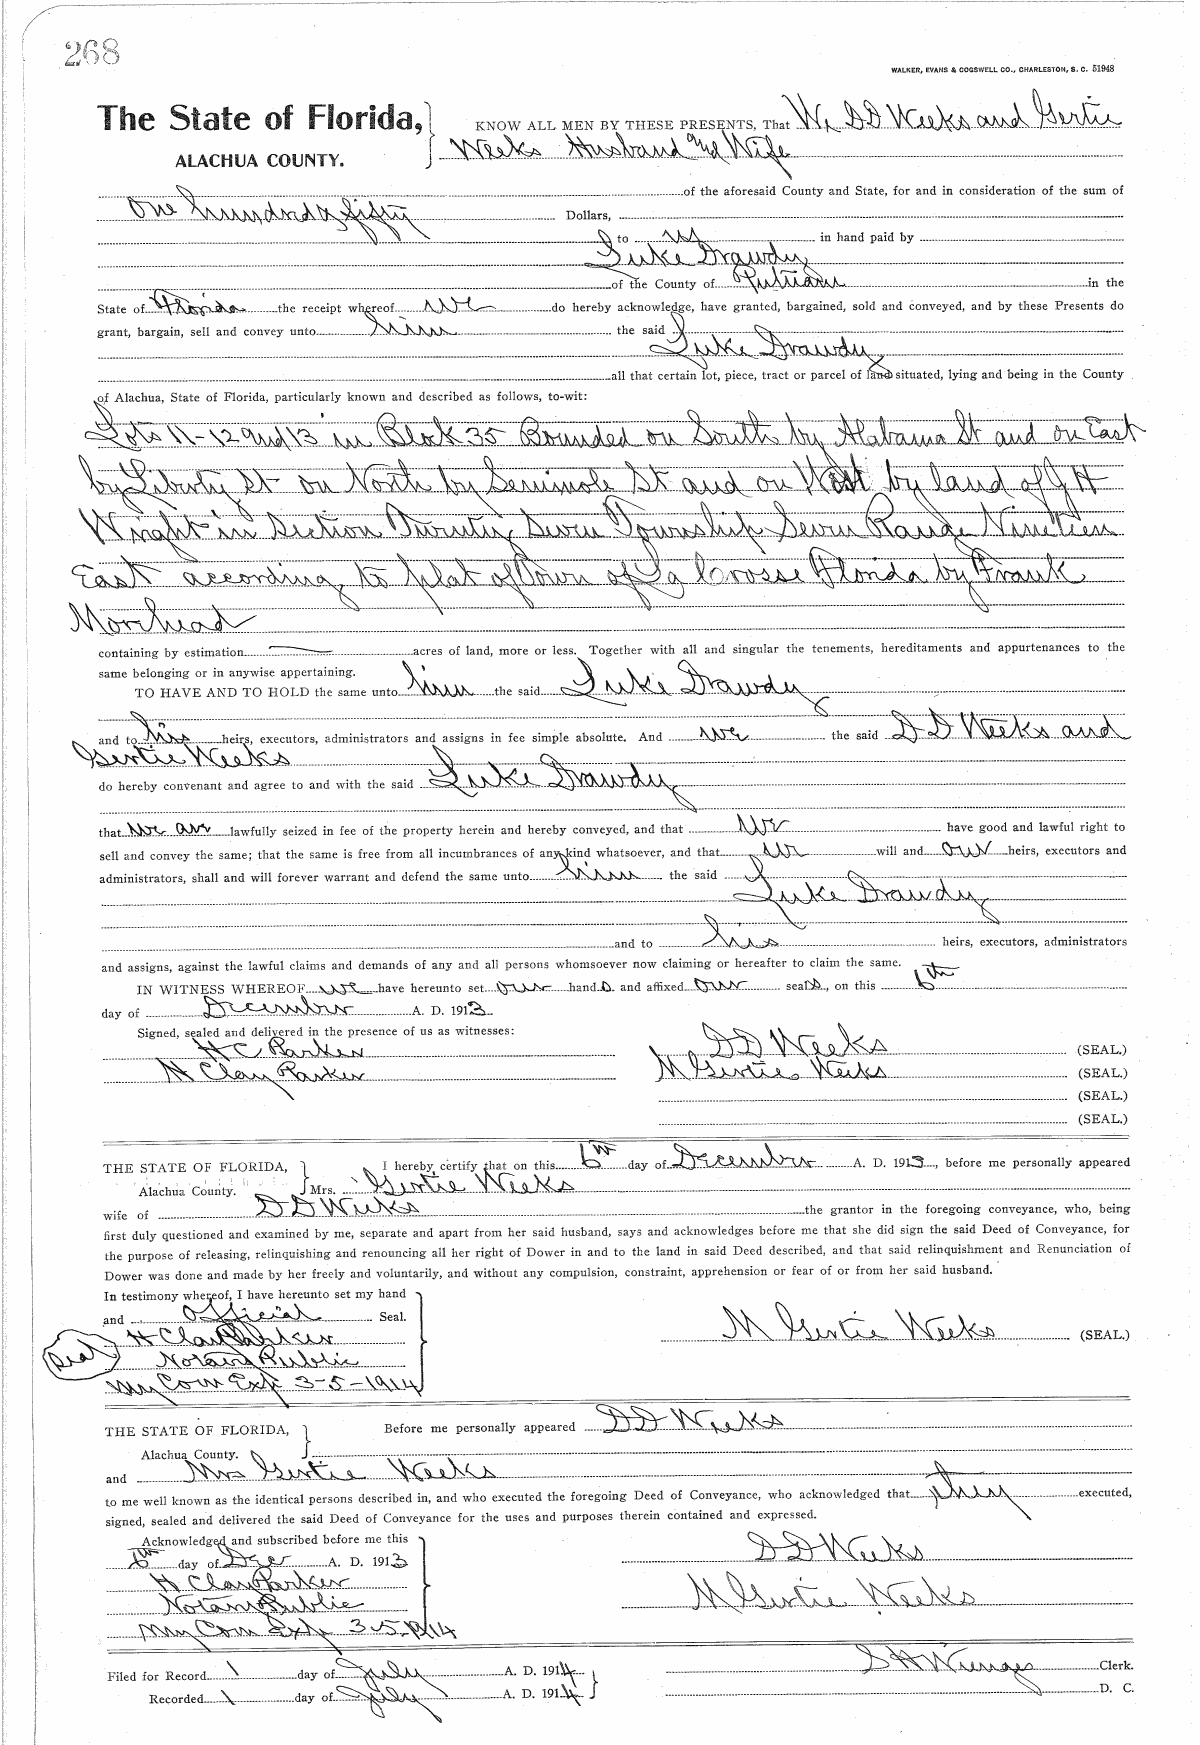 268
WALKER, EVANS & COGSWELL CO., CHARLESTON, S. C. 51948
The State of Florida, KNOW ALL MEN BY THESE PRESENTS, That We DD Weeks and Gertie
ALACHUA COUNTY. Weeks Husband and Wife
of the aforesaid County and State, for and in consideration of the sum of
One hundred & fifty Dollars,
to us in hand paid by
Luke Drawdy
of the County of Putnam in the
State of Florida the receipt whereof we do hereby acknowledge, have granted, bargained, sold and conveyed, and by these Presents do
grant, bargain, sell and convey unto him the said
Luke Drawdy
all that certain lot, piece, tract or parcel of land situated, lying and being in the County
of Alachua, State of Florida, particularly known and described as follows, to-wit:
Lots 11-12 and 13 in Block 35 Bounded on South by Alabama St and on East
by Liberty St on North by Seminole St and on West by land of J H
Wright in Section Twenty Seven Township Seven Range Nineteen
East according to plat of Town of La Crosse Florida by Frank
Morehead
containing by estimation acres of land, more or less. Together with all and singular the tenements, hereditaments and appurtenances to the
same belonging or in anywise appertaining.
TO HAVE AND TO HOLD the same unto him the said Luke Drawdy
and to his heirs, executors, administrators and assigns in fee simple absolute. And we the said D D Weeks and
Gertie Weeks
do hereby convenant and agree to and with the said Luke Drawdy
that we are lawfully seized in fee of the property herein and hereby conveyed, and that we have good and lawful right to
sell and convey the same; that the same is free from all incumbrances of any kind whatsoever, and that we will and our heirs, executors and
administrators, shall and will forever warrant and defend the same unto him the said
Luke Drawdy
and to his heirs, executors, administrators
and assigns, against the lawful claims and demands of any and all persons whomsoever now claiming or hereafter to claim the same.
IN WITNESS WHEREOF we have hereunto set our hands and affixed our seals, on this 6th
day of December A. D. 1913
Signed, sealed and delivered in the presence of us as witnesses:
H C Parker DD Weeks (SEAL.)
H Clay Parker M Gertie Weeks (SEAL.)
(SEAL.)
(SEAL.)
THE STATE OF FLORIDA, I hereby certify that on this 6th day of December A. D. 1913, before me personally appeared
Alachua County. Mrs. Gertie Weeks
wife of D D Weeks the grantor in the foregoing conveyance, who, being
first duly questioned and examined by me, separate and apart from her said husband, says and acknowledges before me that she did sign the said Deed of Conveyance, for
the purpose of releasing, relinquishing and renouncing all her right of Dower in and to the land in said Deed described, and that said relinquishment and Renunciation of
Dower was done and made by her freely and voluntarily, and without any compulsion, constraint, apprehension or fear of or from her said husband.
In testimony whereof, I have hereunto set my hand
and Official Seal.
H Clay Parker M Gertie Weeks (SEAL.)
Seal Notary Public
My Com Exp 3-5-1914
THE STATE OF FLORIDA, Before me personally appeared DD Weeks
Alachua County.
and Mrs Gertie Weeks
to me well known as the identical persons described in, and who executed the foregoing Deed of Conveyance, who acknowledged that they executed,
signed, sealed and delivered the said Deed of Conveyance for the uses and purposes therein contained and expressed.
Acknowledged and subscribed before me this
6th day of Dec A. D. 1913 DD Weeks
H Clay Parker
Notary Public M Gertie Weeks
My Com Exp 3-5-1914
Filed for Record 1 day of July A. D. 1914 S H Wienges Clerk.
Recorded 1 day of July A. D. 1914 D. C.